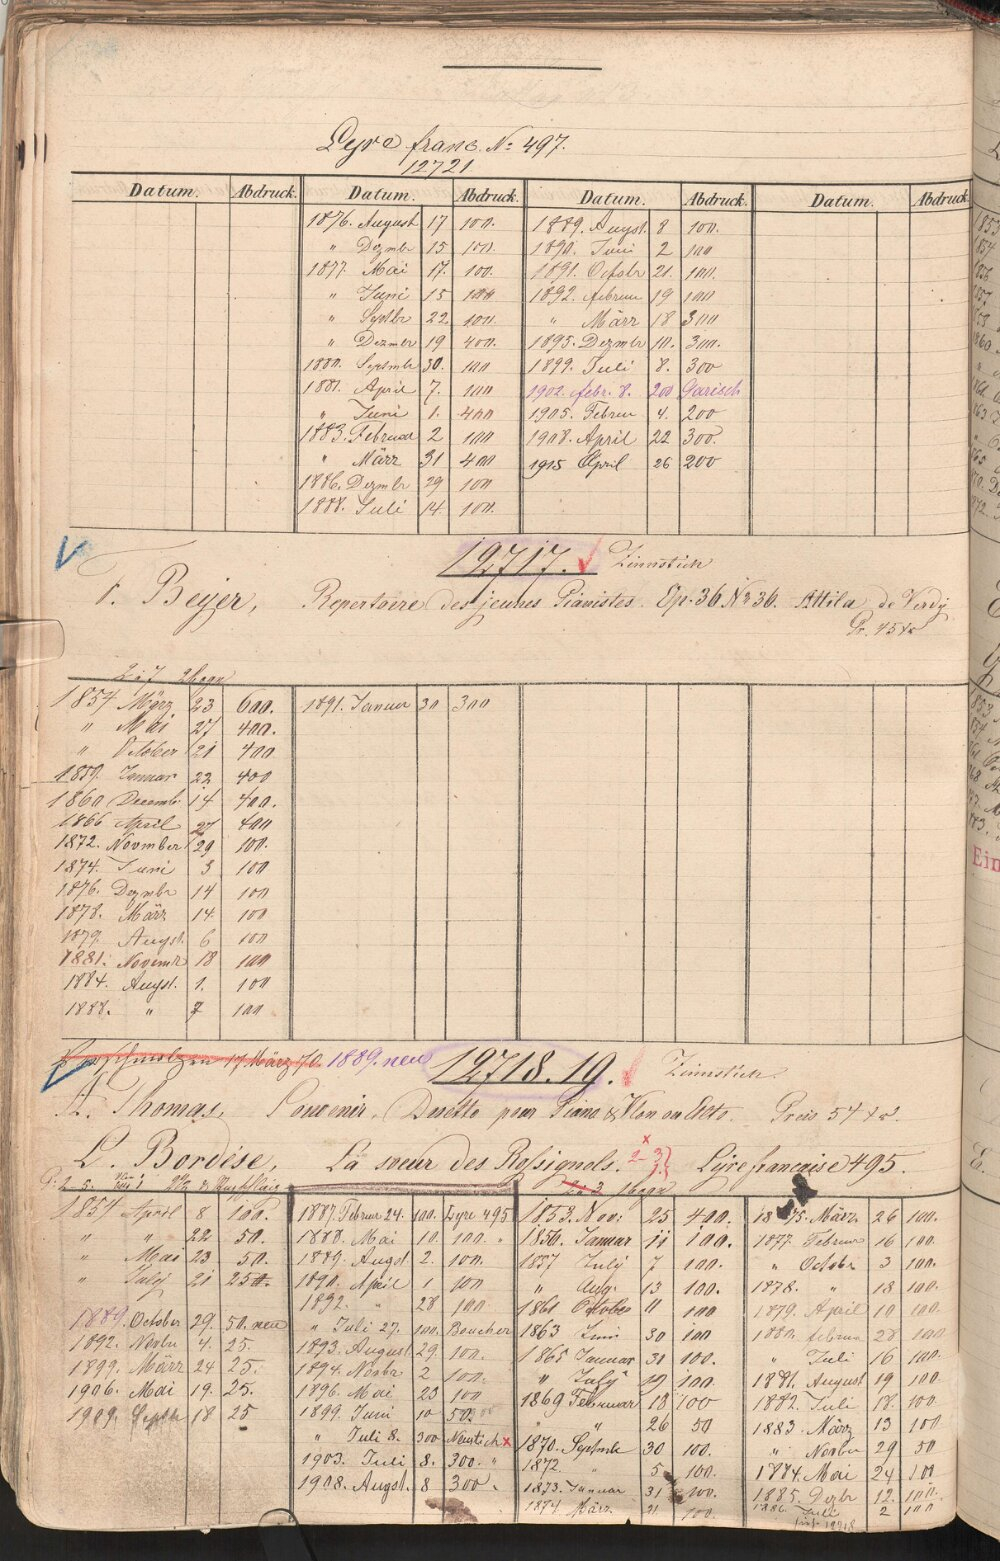 Lyre franc. No 497.
12721
Datum. Abdruck. Datum. Abdruck. Datum. Abdruck. Datum. Abdruck
1876. August 17 100. 1889. Augst. 8 100.
" Dezmbr 15 100. 1890. Juni 2 100
1877. Mai 17. 100. 1891. Octobr 21. 100.
" Juni 15 100 1892. Februar 19 100
" Septbr 22 100. " März 18 300
" Dezmbr 19 400. 1895. Dezmbr 10. 300.
1880. Septmbr 30. 100 1899. Juli 8. 300
1881. April 7. 100 1902. Febr. 8. 200 Garisch
" Juni 1. 400 1905. Februar 4. 200
1883. Februar 2 100 1908. April 22 300.
" März 31 400 1915 April 26 200
1886. Dezmbr 29 100
1888. Juli 14. 100.
12717. Zinnstich
F. Beyer, Repertoire des jeunes Pianistes. Op. 36 No 36. Attila de Verdi
Pr. 45 xr
1854 März 23 600. 1891. Januar 30 300
" Mai 27 400.
" October 21 400
1859. Januar 22 400
1860 Decemb. 14 400.
1866 April 27 400
1872. November 29 100.
1874. Juni 3 100
1876. Dezmbr 14 100
1878. März 14. 100
1879. Augst. 6 100
1881. Novembr 18 100
1884. Augst. 1. 100
1888. " 7 100
17 März 70. 1889. neu 12718.19. Zinnstich.
A. Thomas, Souvenir, Duetto pour Piano & Vlon ou Alto. Preis 54 xr.
L. Bordèse, La soeur des Rossignols. Lyre française 495.
1854 April 8 100. 1887. Februar 24. 100. Lyre 495 1853. Novi 25 400. 1875. März 26 100.
" " 22 50. 1888. Mai 10. 100. " 1856. Januar 11 100. 1877. Februar 16 100.
" Mai 23 50. 1889. Augst 2. 100. 1857 July 7 100. " Octobr 3 100.
" July 21 25. 1890. April 1 100 " Aug. 13 100. 1878. " 18 100.
1892. " 28 100. 1861 October 11 100 1879. April 10 100.
1889. October 29. 50. neu " Juli 27. 100. Boucher 1863 Juni 30 100 1880. Februar 28 100
1892. Novbr 4. 25. 1893. August 29. 100. 1865 Januar 31 100. " Juli 16 100.
1899. März 24 25. 1894. Novbr 2 100. " July 19 100. 1881. August 19 100
1906. Mai 19. 25. 1896. Mai 23 100 1869 Februar 18 100 1882. Juli 18. 100
1909. Septbr 18 25 1899. Juni 10 50. " " 26 50 1883. März 13 100
" Juli 8. 300 Neustich x 1870. Septmbr 30 100. " Novbr 29 50
1903. Juli 8. 300. " 1872. " 5 100. 1884. Mai 24 100
1908. Augst. 8 300 " 1873. Januar 31 100. 1885. Dezbr 12. 100.
1874. März 21 100. 1886. Juli 2 100